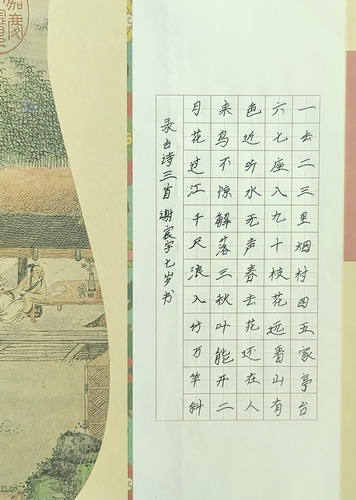 一去二三里烟村四五家亭台
六七座八九十枝花远看山有
色近听水无声春去花还在人
来鸟不惊解落三秋叶能开二
月花过江千尺浪入竹万竿斜
录古诗三首谢宸宇七岁书